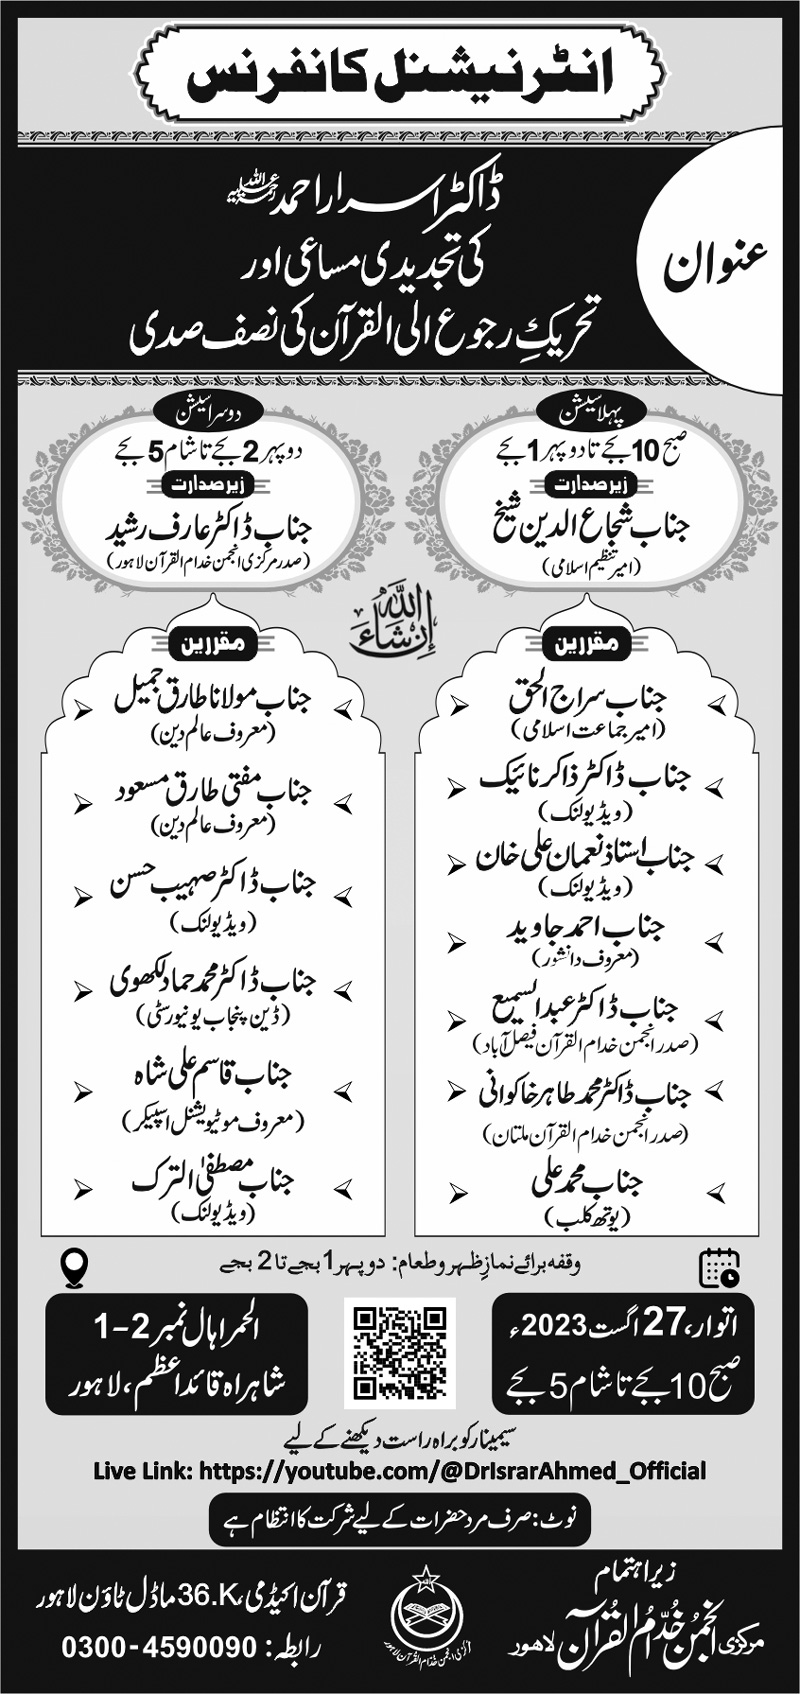 انٹرنیشنل کانفرنس
عنوان
ڈاکٹر اسرار احمد رحمۃ اللہ علیہ
کی تجدیدی مساعی اور
تحریکِ رجوع الی القرآن کی نصف صدی
پہلا سیشن
صبح 10 بجے تا دوپہر 1 بجے
زیر صدارت
جناب شجاع الدین شیخ
(امیر تنظیم اسلامی)
دوسرا سیشن
دوپہر 2 بجے تا شام 5 بجے
زیر صدارت
جناب ڈاکٹر عارف رشید
(صدر مرکزی انجمن خدام القرآن لاہور)
ان شاء اللہ
مقررین
جناب سراج الحق
(امیر جماعت اسلامی)
جناب ڈاکٹر ذاکر نائیک
(ویڈیو لنک)
جناب استاذ نعمان علی خان
(ویڈیو لنک)
جناب احمد جاوید
(معروف دانشور)
جناب ڈاکٹر عبدالسمیع
(صدر انجمن خدام القرآن فیصل آباد)
جناب ڈاکٹر محمد طاہر خاکوانی
(صدر انجمن خدام القرآن ملتان)
جناب محمد علی
(یوتھ کلب)
مقررین
جناب مولانا طارق جمیل
(معروف عالم دین)
جناب مفتی طارق مسعود
(معروف عالم دین)
جناب ڈاکٹر صہیب حسن
(ویڈیو لنک)
جناب ڈاکٹر محمد حماد لکھوی
(ڈین پنجاب یونیورسٹی)
جناب قاسم علی شاہ
(معروف موٹیویشنل اسپیکر)
جناب مصطفیٰ الترک
(ویڈیو لنک)
وقفہ برائے نمازِ ظہر و طعام: دوپہر 1 بجے تا 2 بجے
اتوار، 27 اگست 2023ء
صبح 10 بجے تا شام 5 بجے
الحمرا ہال نمبر 2-1
شاہراہ قائداعظم، لاہور
سیمینار کو براہ راست دیکھنے کے لیے
Live Link: https://youtube.com/@DrIsrarAhmed_Official
نوٹ: صرف مرد حضرات کے لیے شرکت کا انتظام ہے
زیر اہتمام
مرکزی انجمن خُدّامُ القُرآن لاہور
مرکزی انجمن خدام القرآن لاہور
قرآن اکیڈمی، 36.K ماڈل ٹاؤن لاہور
رابطہ: 0300-4590090